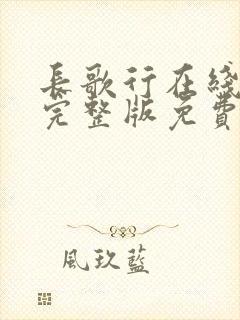 長歌行在綫
完整版免費
風玖藍